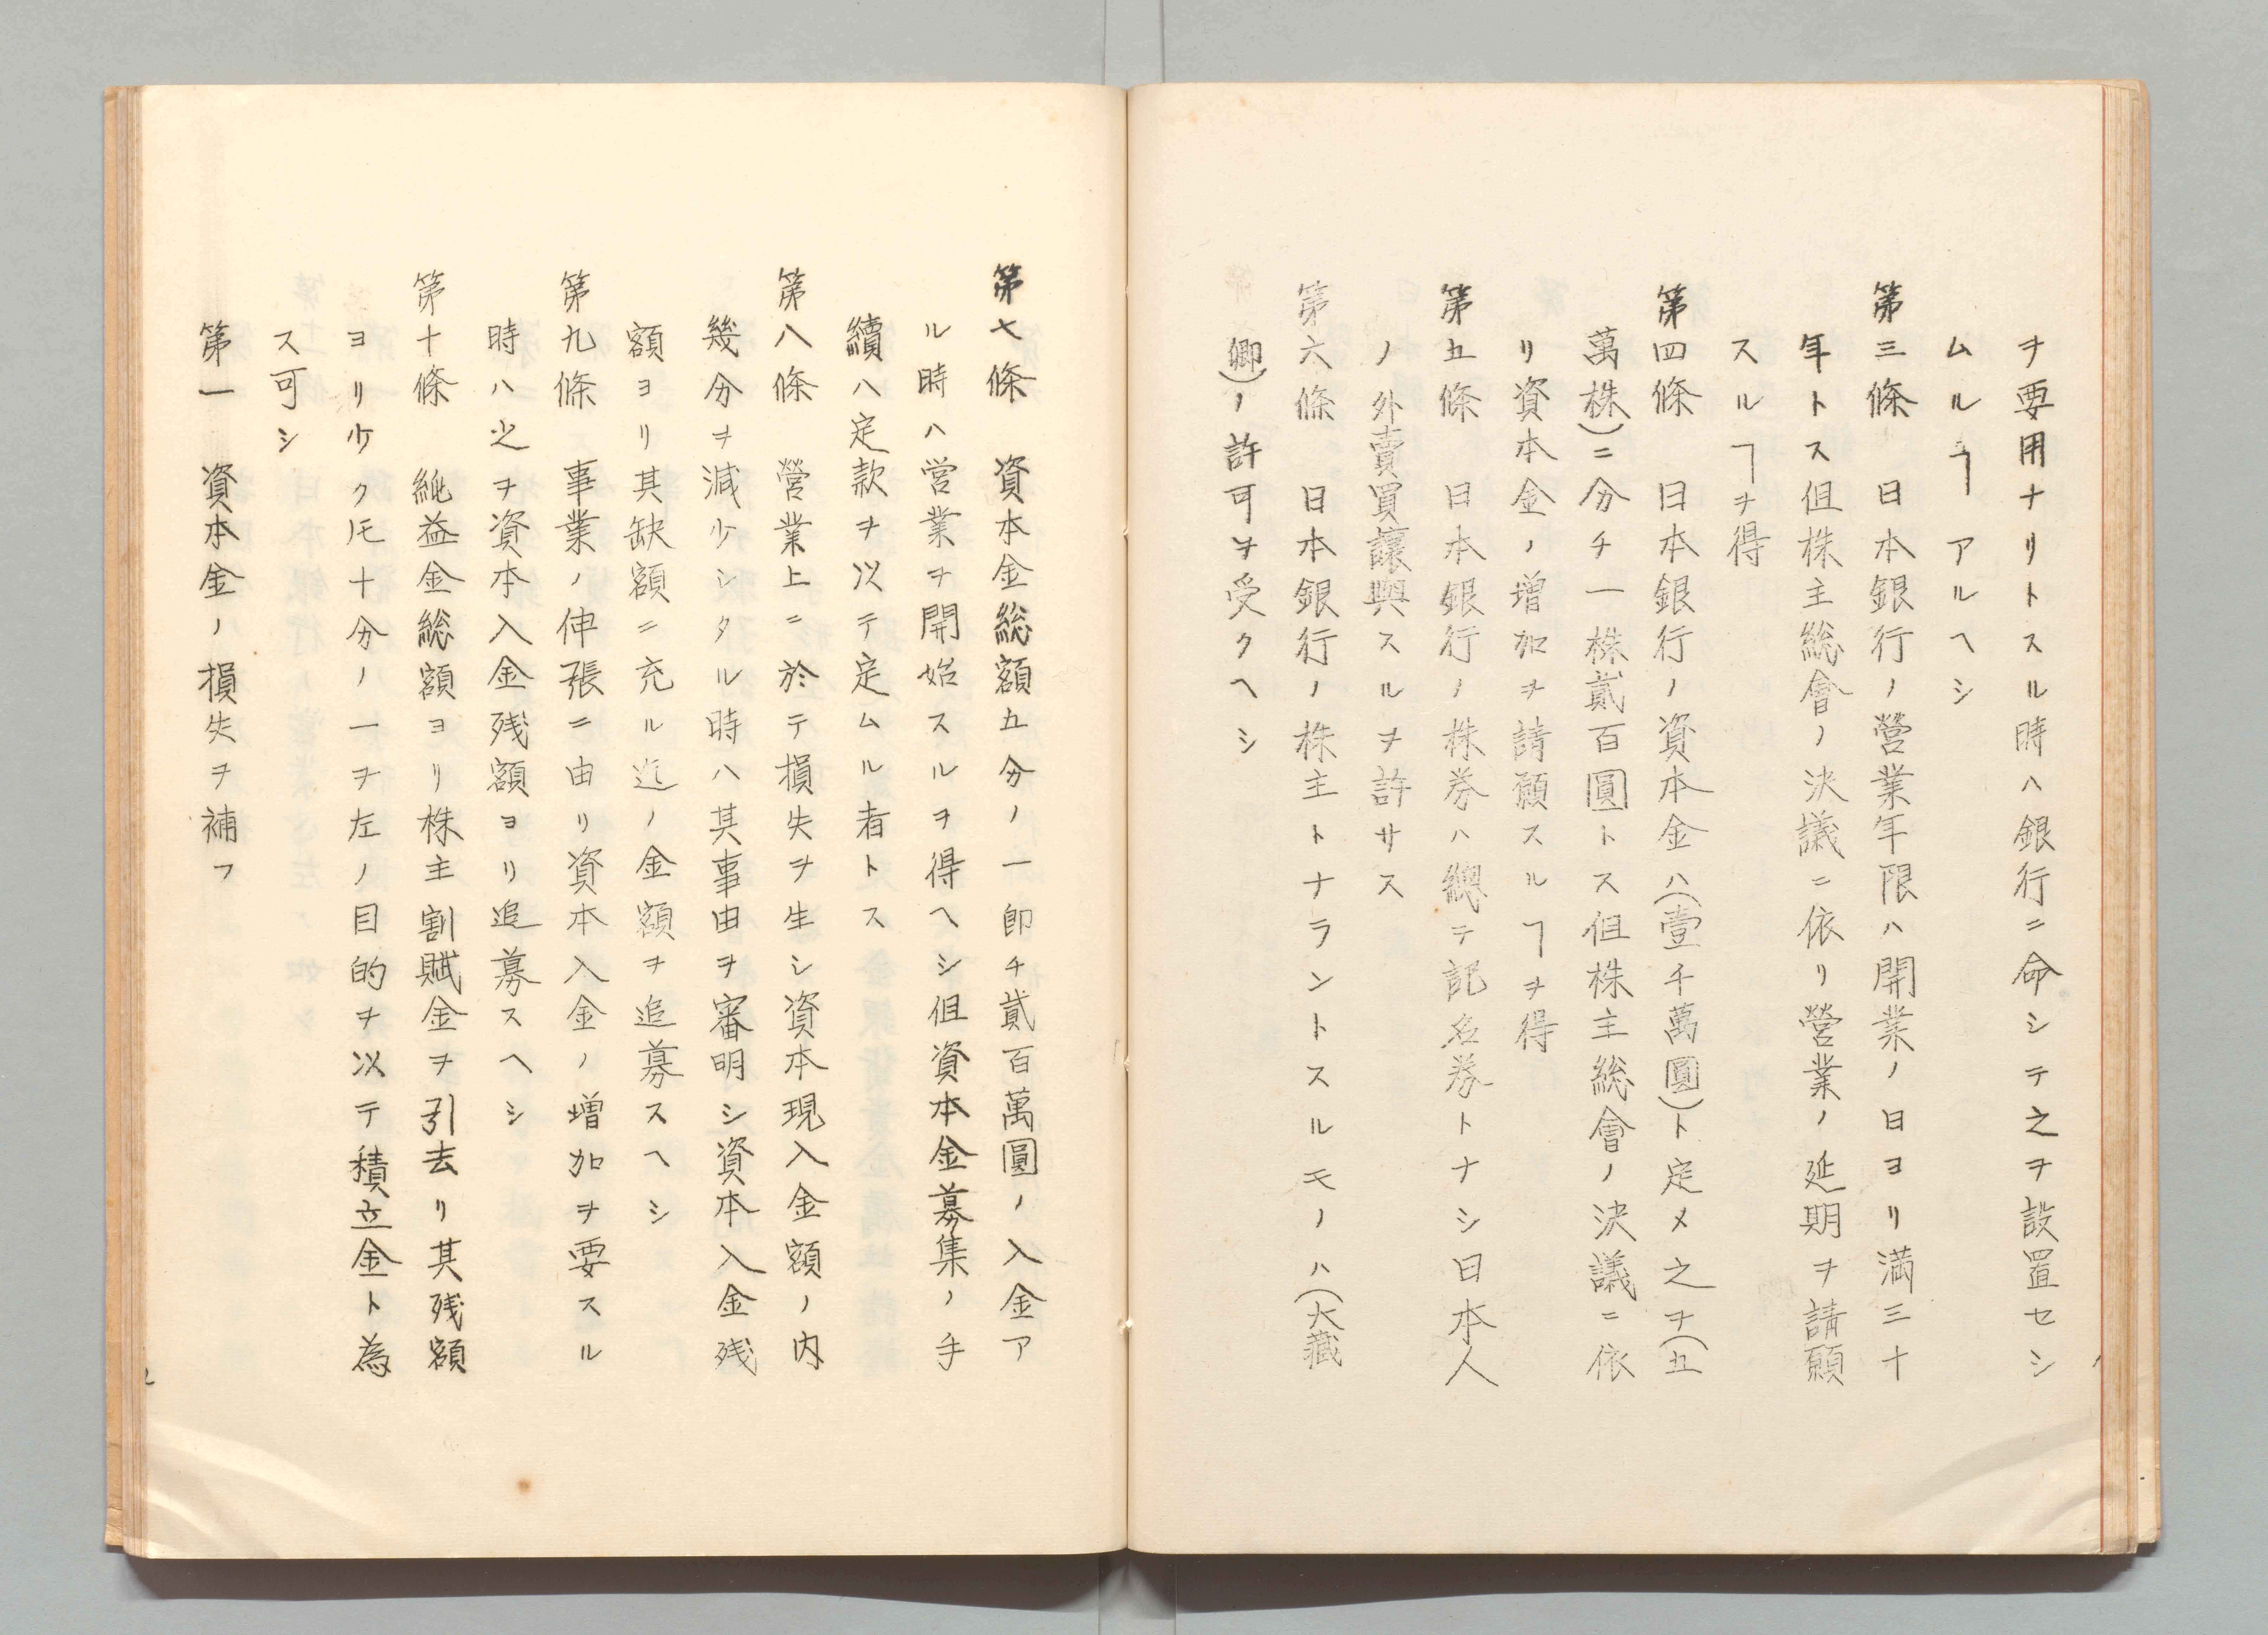 ヲ要用ナリトスル時ハ銀行ニ命シテ之ヲ設置セシ
ムルヿアルヘシ
第三條 日本銀行ノ營業年限ハ開業ノ日ヨリ満三十
年トス但株主総會ノ決議ニ依リ營業ノ延期ヲ請願
スルヿヲ得
第四條 日本銀行ノ資本金ハ(壹千萬圓)ト定メ之ヲ(五
萬株)ニ分チ一株貳百圓トス但株主総會ノ決議ニ依
リ資本金ノ増加ヲ請願スルヿヲ得
第五條 日本銀行ノ株券ハ總テ記名券トナシ日本人
ノ外賣買讓與スルヲ許サス
第六條 日本銀行ノ株主トナラントスルモノハ(大藏
卿)ノ許可ヲ受クヘシ
第七條 資本金総額五分ノ一卽チ貳百萬圓ノ入金ア
ル時ハ営業ヲ開始スルヲ得ヘシ但資本金募集ノ手
續ハ定款ヲ以テ定ムル者トス
第八條 營業上ニ於テ損失ヲ生シ資本現入金額ノ内
幾分ヲ減少シタル時ハ其事由ヲ審明シ資本入金残
額ヨリ其缺額ニ充ル迄ノ金額ヲ追募スヘシ
第九條 事業ノ伸張ニ由リ資本入金ノ増加ヲ要スル
時ハ之ヲ資本入金残額ヨリ追募スヘシ
第十條 純益金総額ヨリ株主割賦金ヲ引去リ其残額
ヨリ少ク圧十分ノ一ヲ左ノ目的ヲ以テ積立金ト為
ス可シ
第一 資本金ノ損失ヲ補フ